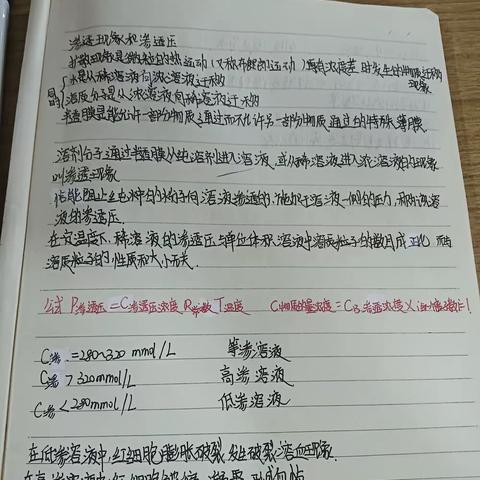 渗透现象和渗透压
扩散现象是微粒的热运动(又称布朗运动)而自浓度差时发生的物质迁移现象
目的 水是从稀溶液向浓溶液迁移
溶质分子是从浓溶液向稀溶液迁移
半透膜是能允许一部分物质通过而不允许另一部分物质通过的特殊薄膜
溶剂分子通过半透膜从纯溶剂进入溶液,或从稀溶液进入浓溶液的现象
叫渗透现象
恰能阻止纯水中的水分子向溶液渗透的,施加于溶液一侧的压力,称为该溶
液的渗透压
在定温度下,稀溶液的渗透压与单位体积溶液中溶质粒子的数目成正比 而与
溶质粒子的性质和大小无关.
公式 P渗透压=C渗透压浓度 R常数 T温度 C物质的量浓度=CB
C渗=280~320 mmol/L 等渗溶液
C渗>320mmol/L 高渗溶液
C渗<280mmol/L 低渗溶液
在低渗溶液中,红细胞膨胀破裂 发生破裂,溶血现象.